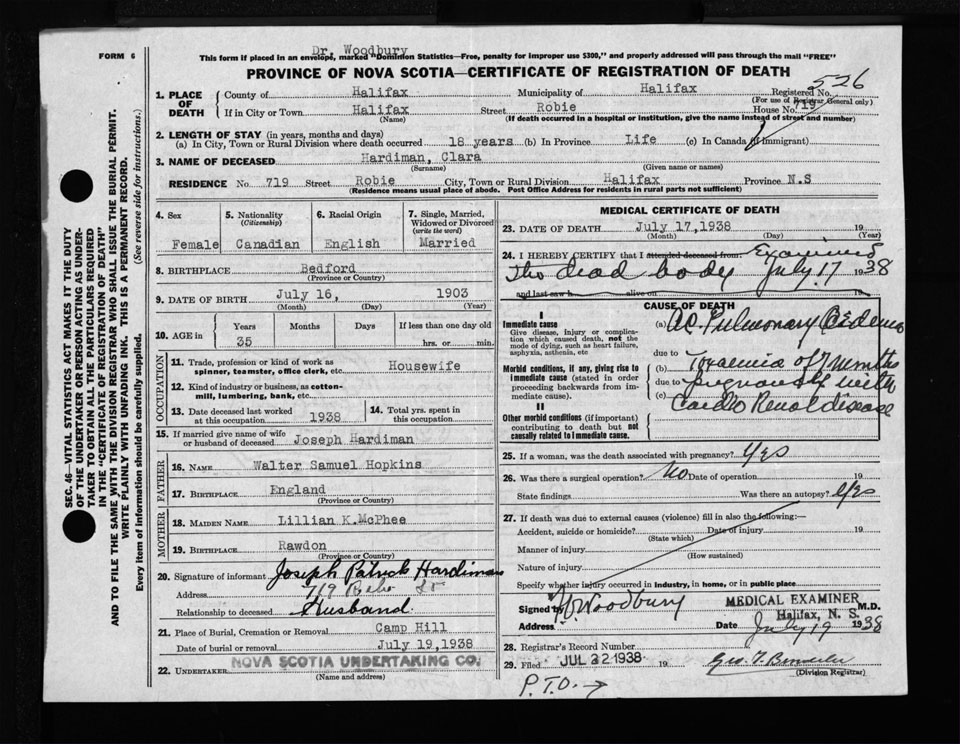 FORM 6
Dr. Woodbury
This form if placed in an envelope, marked "Dominion Statistics—Free, penalty for improper use $300," and properly addressed will pass through the mail "FREE"
PROVINCE OF NOVA SCOTIA—CERTIFICATE OF REGISTRATION OF DEATH
526
1. PLACE OF DEATH
County of Halifax Municipality of Halifax Registered No.
(For use of Registrar General only)
If in City or Town Halifax Street Robie House No. 719
(Name) (If death occurred in a hospital or institution, give the name instead of street and number)
2. LENGTH OF STAY (in years, months and days)
(a) In City, Town or Rural Division where death occurred 18 years (b) In Province Life (c) In Canada (if immigrant)
3. NAME OF DECEASED Hardiman, Clara
(Surname) (Given name or names)
RESIDENCE No. 719 Street Robie City, Town or Rural Division Halifax Province N.S
(Residence means usual place of abode. Post Office Address for residents in rural parts not sufficient)
SEC. 46—VITAL STATISTICS ACT MAKES IT THE DUTY
OF THE UNDERTAKER OR PERSON ACTING AS UNDER-
TAKER TO OBTAIN ALL THE PARTICULARS REQUIRED
IN THE "CERTIFICATE OF REGISTRATION OF DEATH"
AND TO FILE THE SAME WITH THE DIVISION REGISTRAR WHO SHALL ISSUE THE BURIAL PERMIT.
WRITE PLAINLY WITH UNFADING INK. THIS IS A PERMANENT RECORD.
Every item of information should be carefully supplied. (See reverse side for instructions.)
4. Sex
Female
5. Nationality
(Citizenship)
Canadian
6. Racial Origin
English
7. Single, Married,
Widowed or Divorced
(write the word)
Married
8. BIRTHPLACE Bedford
(Province or Country)
9. DATE OF BIRTH July 16, 1903
(Month) (Day) (Year)
10. AGE in
Years Months Days If less than one day old
35 hrs. or min.
OCCUPATION
11. Trade, profession or kind of work as
spinner, teamster, office clerk, etc. Housewife
12. Kind of industry or business, as cotton-
mill, lumbering, bank, etc.
13. Date deceased last worked
at this occupation 1938
14. Total yrs. spent in
this occupation
15. If married give name of wife
or husband of deceased Joseph Hardiman
FATHER
16. NAME Walter Samuel Hopkins
17. BIRTHPLACE England
MOTHER
18. MAIDEN NAME Lillian K.McPhee
19. BIRTHPLACE Rawdon
(Province or Country)
20. Signature of informant Joseph Patrick Hardiman
Address 719 Robie St
Relationship to deceased Husband.
21. Place of Burial, Cremation or Removal Camp Hill
Date of burial or removal July 19,1938
22. UNDERTAKER NOVA SCOTIA UNDERTAKING CO.
(Name and address)
MEDICAL CERTIFICATE OF DEATH
23. DATE OF DEATH July 17,1938 19
(Month) (Day) (Year)
24. I HEREBY CERTIFY that I attended deceased from: Examined
The dead body July 17 1938
and last saw h alive on 19
CAUSE OF DEATH
I
Immediate cause
Give disease, injury or complica-
tion which caused death, not the
mode of dying, such as heart failure,
asphyxia, asthenia, etc
Morbid conditions, if any, giving rise to
immediate cause (stated in order
proceeding backwards from im-
mediate cause).
II
Other morbid conditions (if important)
contributing to death but not
causally related to immediate cause.
(a) Ac. Pulmonary Oedema
due to
(b) Toxaemia of 7 months
due to
(c) pregnancy with
Cardio Renal disease
25. If a woman, was the death associated with pregnancy? Yes
26. Was there a surgical operation? No Date of operation 19
State findings Was there an autopsy? Yes
27. If death was due to external causes (violence) fill in also the following:—
Accident, suicide or homicide? Date of injury 19
(State which)
Manner of injury
(How sustained)
Nature of injury
Specify whether injury occurred in industry, in home, or in public place
Signed by Woodbury M.D.
MEDICAL EXAMINER
Halifax, N. S.
Address Date July 19 1938
28. Registrar's Record Number
29. Filed JUL 22 1938 19
(Division Registrar)
P.T.O. →